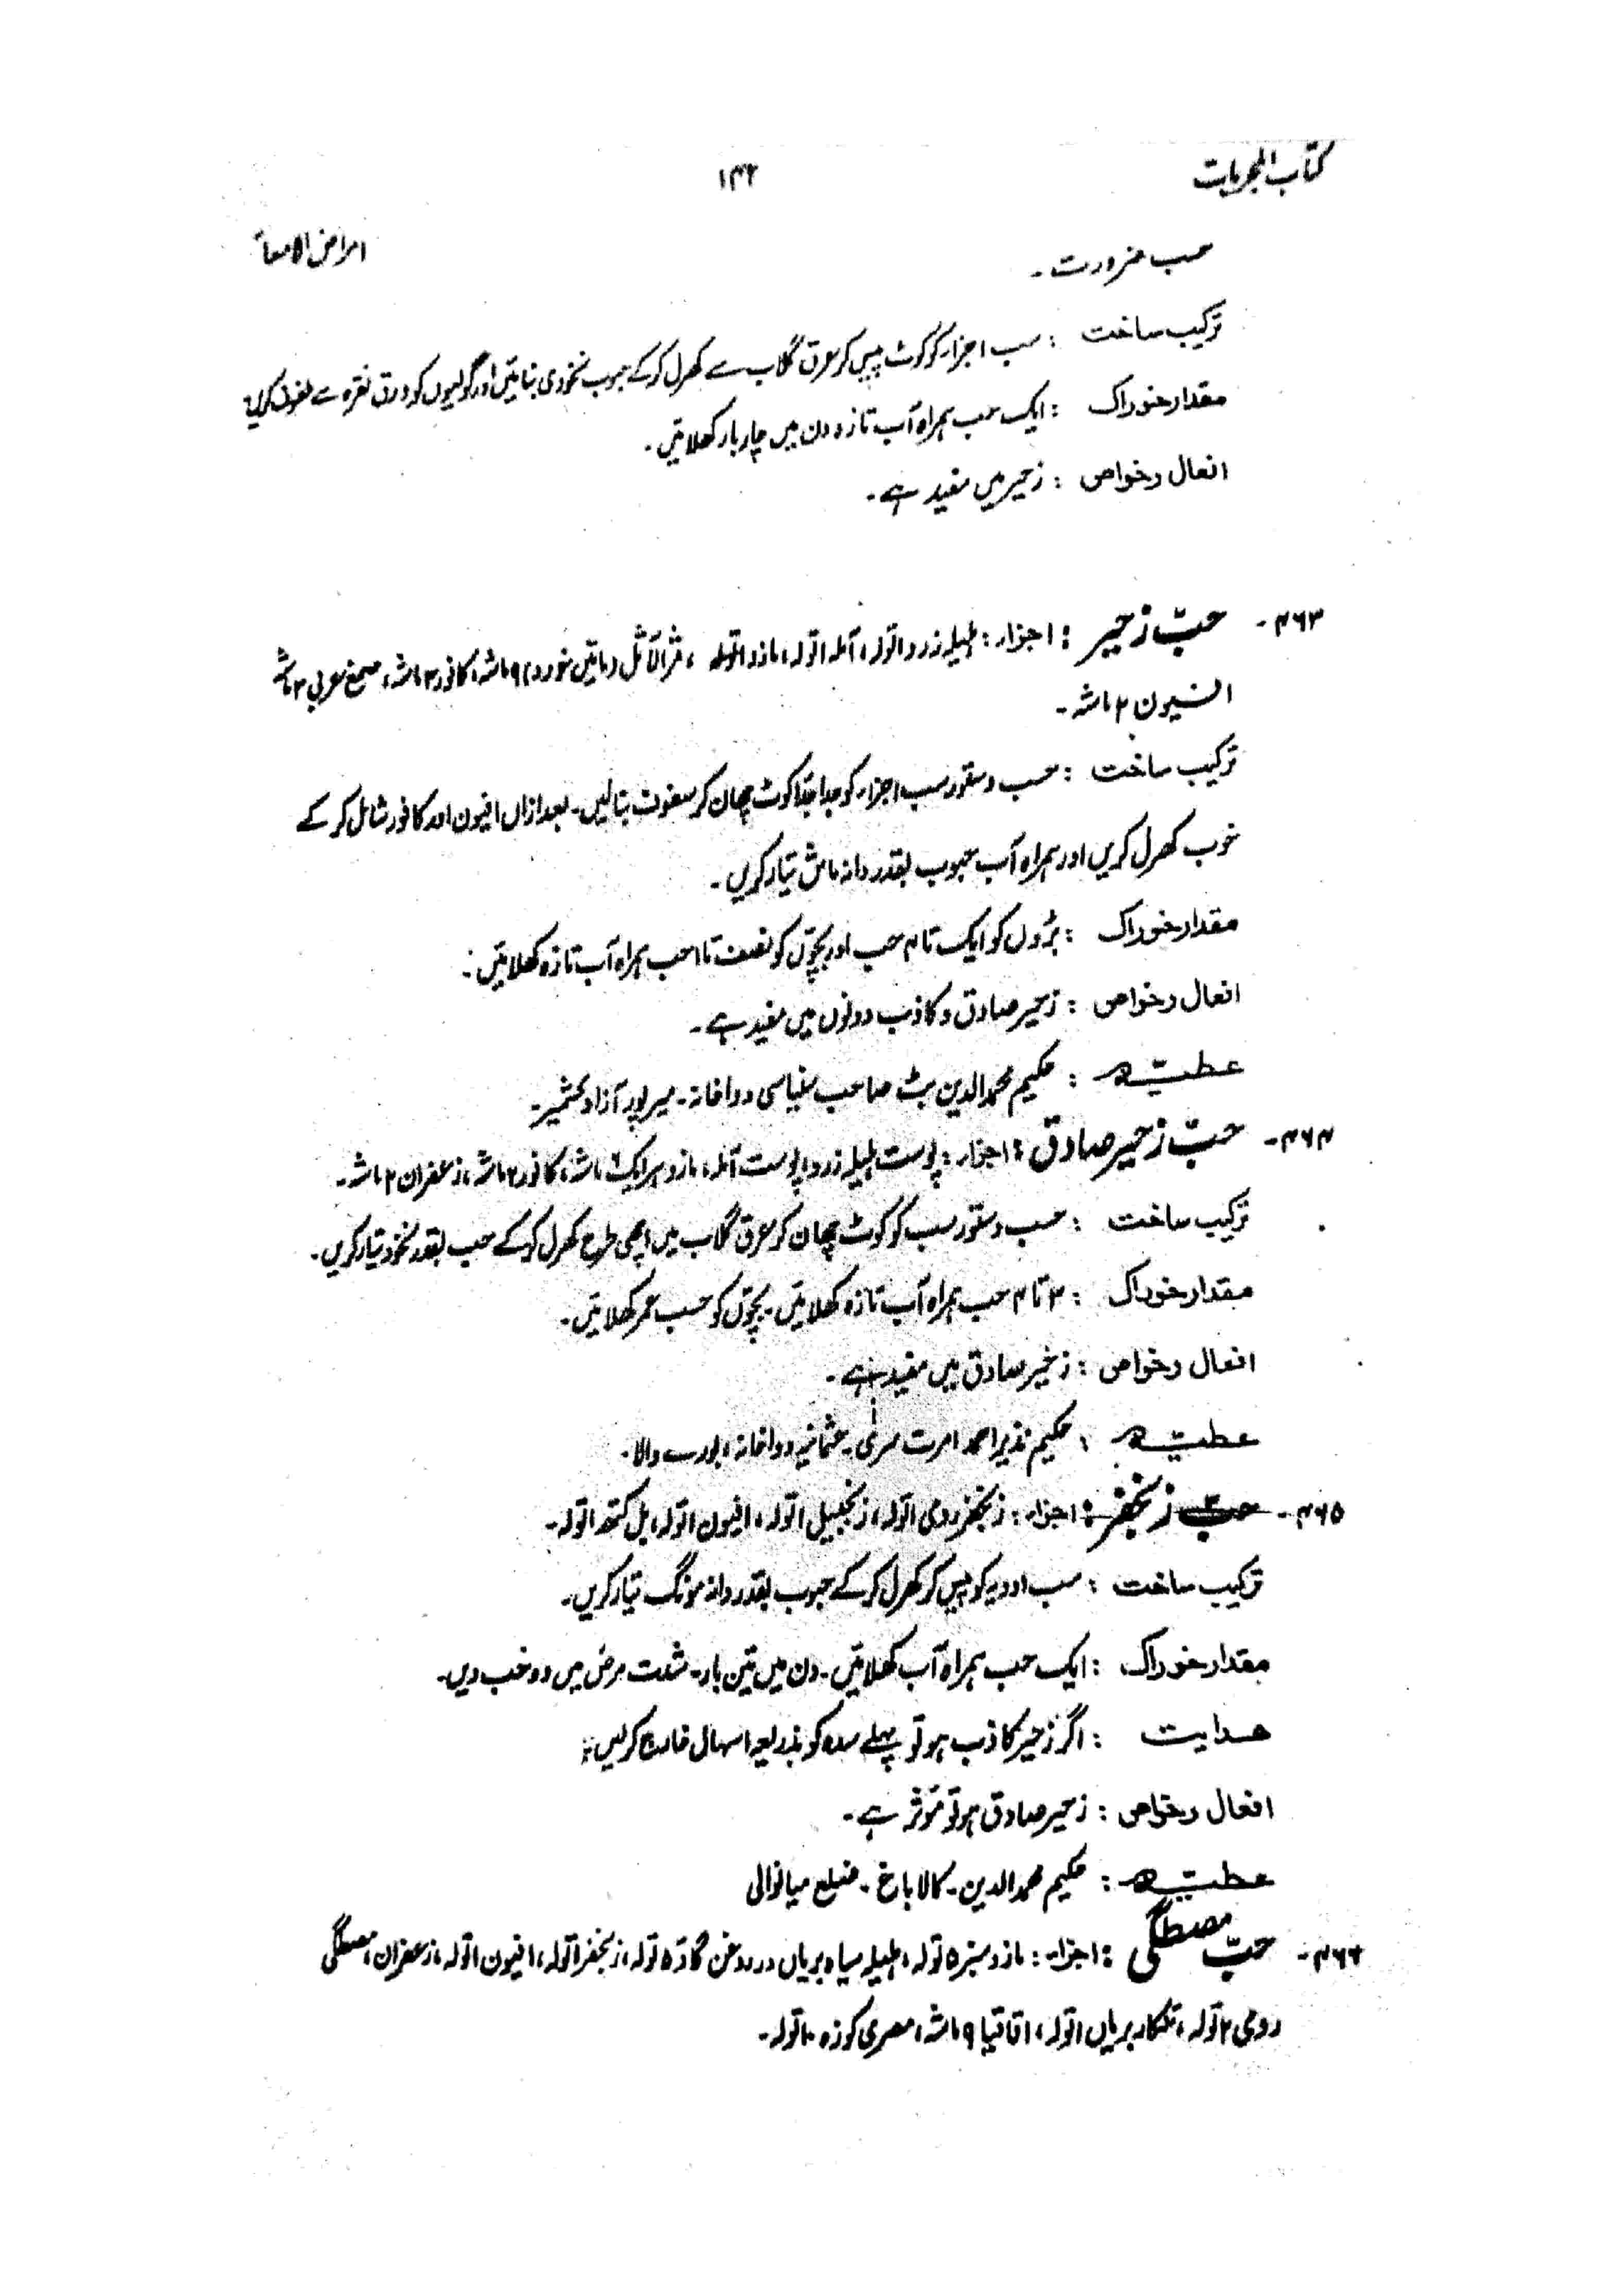 کتاب المجربات
۱۴۲
امراض الامعاء
حسب ضرورت۔
ترکیب ساخت : سب اجزاء کو کوٹ پیس کر عرق گلاب سے کھرل کر کے حبوب نخودی بنائیں اور گولیوں کو ورق نقرہ سے ملفوف کریں۔
مقدار خوراک : ایک حب ہمراہ آب تازہ دن میں چار بار کھلائیں۔
افعال و خواص : زحیر میں مفید ہے۔
۴۶۳۔ حبّ زحیر : اجزاء : ہلیلہ زرد ۱ تولہ، آملہ ۱ تولہ، مازو ۱ تولہ، ثمر الاثل (مائیں خورد) ۹ ماشہ، کافور ۳ ماشہ، صمغ عربی ۳ ماشہ
افیون ۲ ماشہ۔
ترکیب ساخت : حسب دستور سب اجزاء کو جدا جدا کوٹ چھان کر سفوف بنالیں۔ بعد ازاں افیون اور کافور شامل کر کے
خوب کھرل کریں اور ہمراہ آب حبوب بقدر دانہ ماش تیار کریں۔
مقدار خوراک : بڑوں کو ایک تا ۲ حب اور بچوں کو نصف تا ۱ حب ہمراہ آب تازہ کھلائیں۔
افعال و خواص : زحیر صادق و کاذب دونوں میں مفید ہے۔
عطیہ : حکیم محمد الدین بٹ صاحب سنیاسی دواخانہ۔ میرپور آزاد کشمیر۔
۴۶۴۔ حبّ زحیر صادق : اجزاء : پوست ہلیلہ زرد، پوست آملہ، مازو ہر ایک ۶ ماشہ، کافور ۲ ماشہ، زعفران ۲ ماشہ۔
ترکیب ساخت : حسب دستور سب کو کوٹ چھان کر عرق گلاب میں اچھی طرح کھرل کر کے حب بقدر نخود تیار کریں۔
مقدار خوراک : ۲ تا ۴ حب ہمراہ آب تازہ کھلائیں۔ بچوں کو حسب عمر کھلائیں۔
افعال و خواص : زحیر صادق میں مفید ہے۔
عطیہ : حکیم نذیر احمد امرت سری۔ عثمانیہ دواخانہ، بورے والا۔
۴۶۵۔ حبّ زنجفر : اجزاء : زنجفر رومی ۱ تولہ، زنجبیل ۱ تولہ، افیون ۱ تولہ، بل کتھ ۱ تولہ۔
ترکیب ساخت : سب ادویہ کو پیس کر کھرل کر کے حبوب بقدر دانہ مونگ تیار کریں۔
مقدار خوراک : ایک حب ہمراہ آب کھلائیں۔ دن میں تین بار۔ شدت مرض میں دو حب دیں۔
ھدایت : اگر زحیر کاذب ہو تو پہلے سدہ کو بذریعہ اسہال خارج کرلیں۔
افعال و خواص : زحیر صادق ہو تو مؤثر ہے۔
عطیہ : حکیم محمد الدین۔ کالا باغ۔ ضلع میانوالی
۴۶۶۔ حبّ مصطگی : اجزاء : مازو سبز ۵ تولہ، ہلیلہ سیاہ بریاں در روغن گاؤ ۵ تولہ، زنجفر ۱ تولہ، افیون ۱ تولہ، زعفران، مصطگی
رومی ۲ تولہ، تنکار بریاں ۱ تولہ، اقاقیا ۹ ماشہ، مصری کوزہ ۱۰ تولہ۔